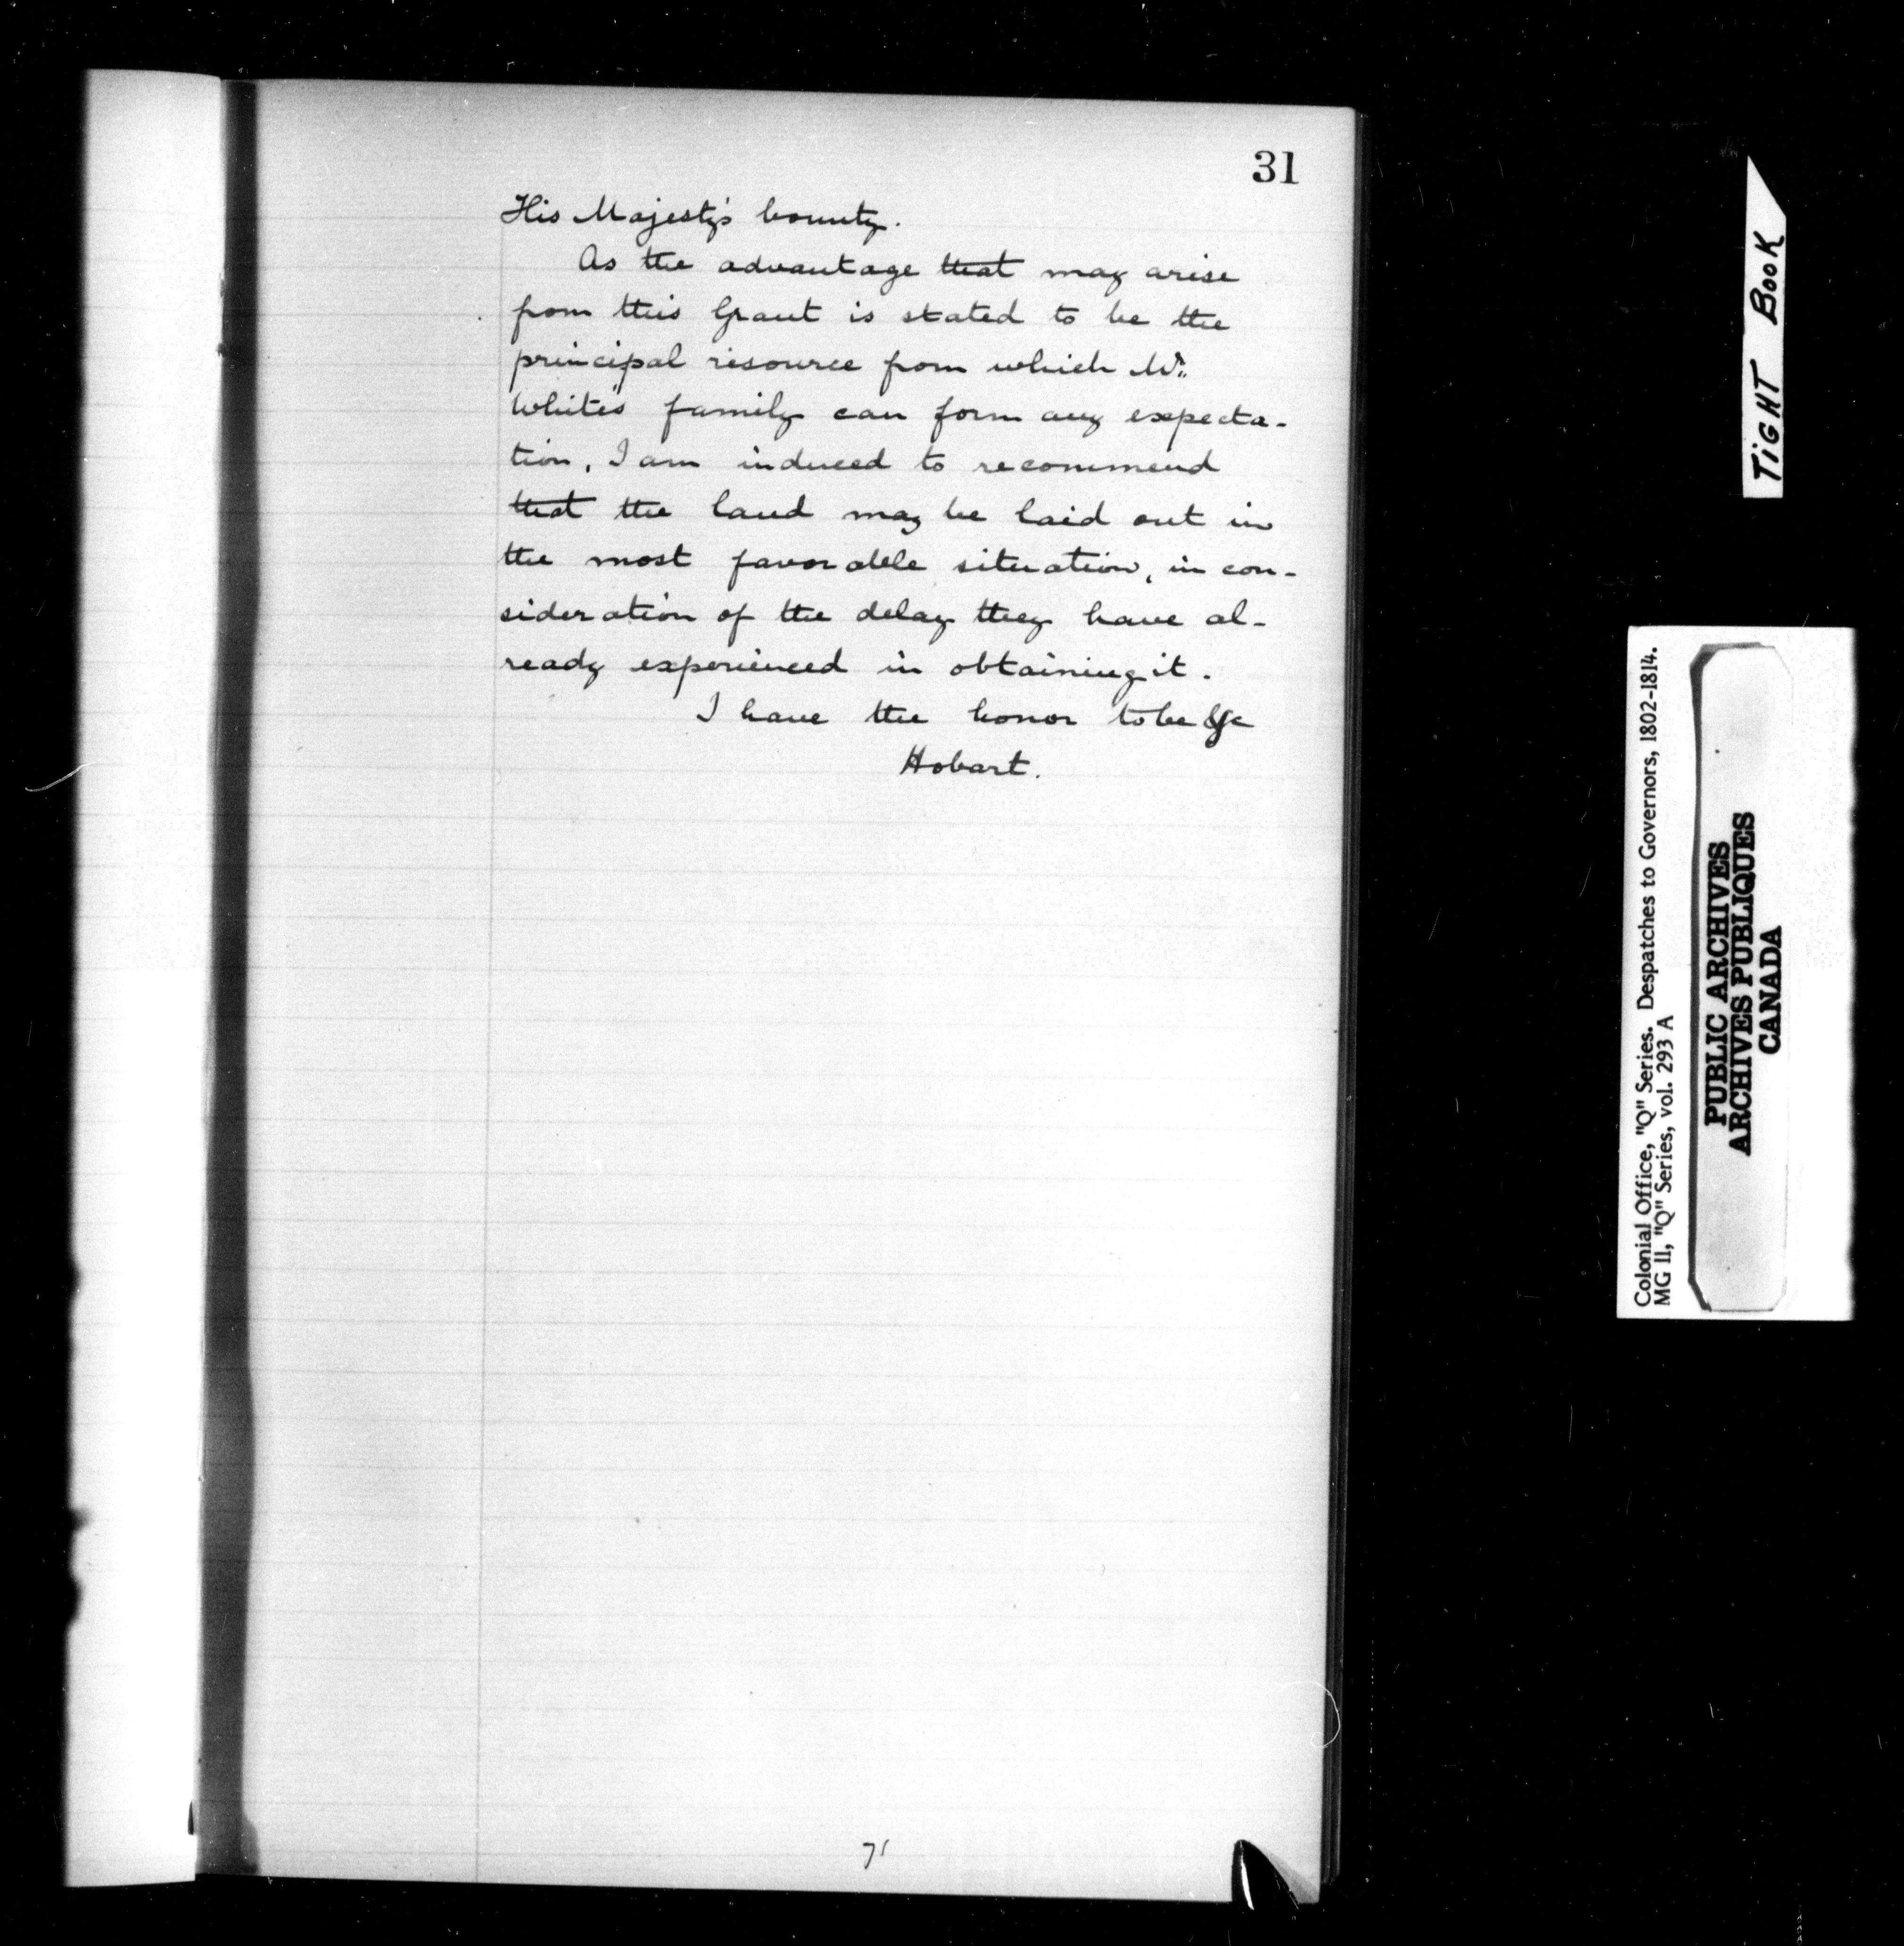 31
His Majesty's bounty.
As the advantage that may arise
from this Grant is stated to be the
principal resource from which Mr.
White's family can form any expecta-
tion, I am induced to recommend
that the land may be laid out in
the most favorable situation, in con-
sideration of the delay they have al-
ready experienced in obtaining it.
I have the honor to be &c
Hobart.
71
TIGHT BOOK
Colonial Office, "Q" Series. Despatches to Governors, 1802-1814.
MG 11, "Q" Series, vol. 293 A
PUBLIC ARCHIVES
ARCHIVES PUBLIQUES
CANADA